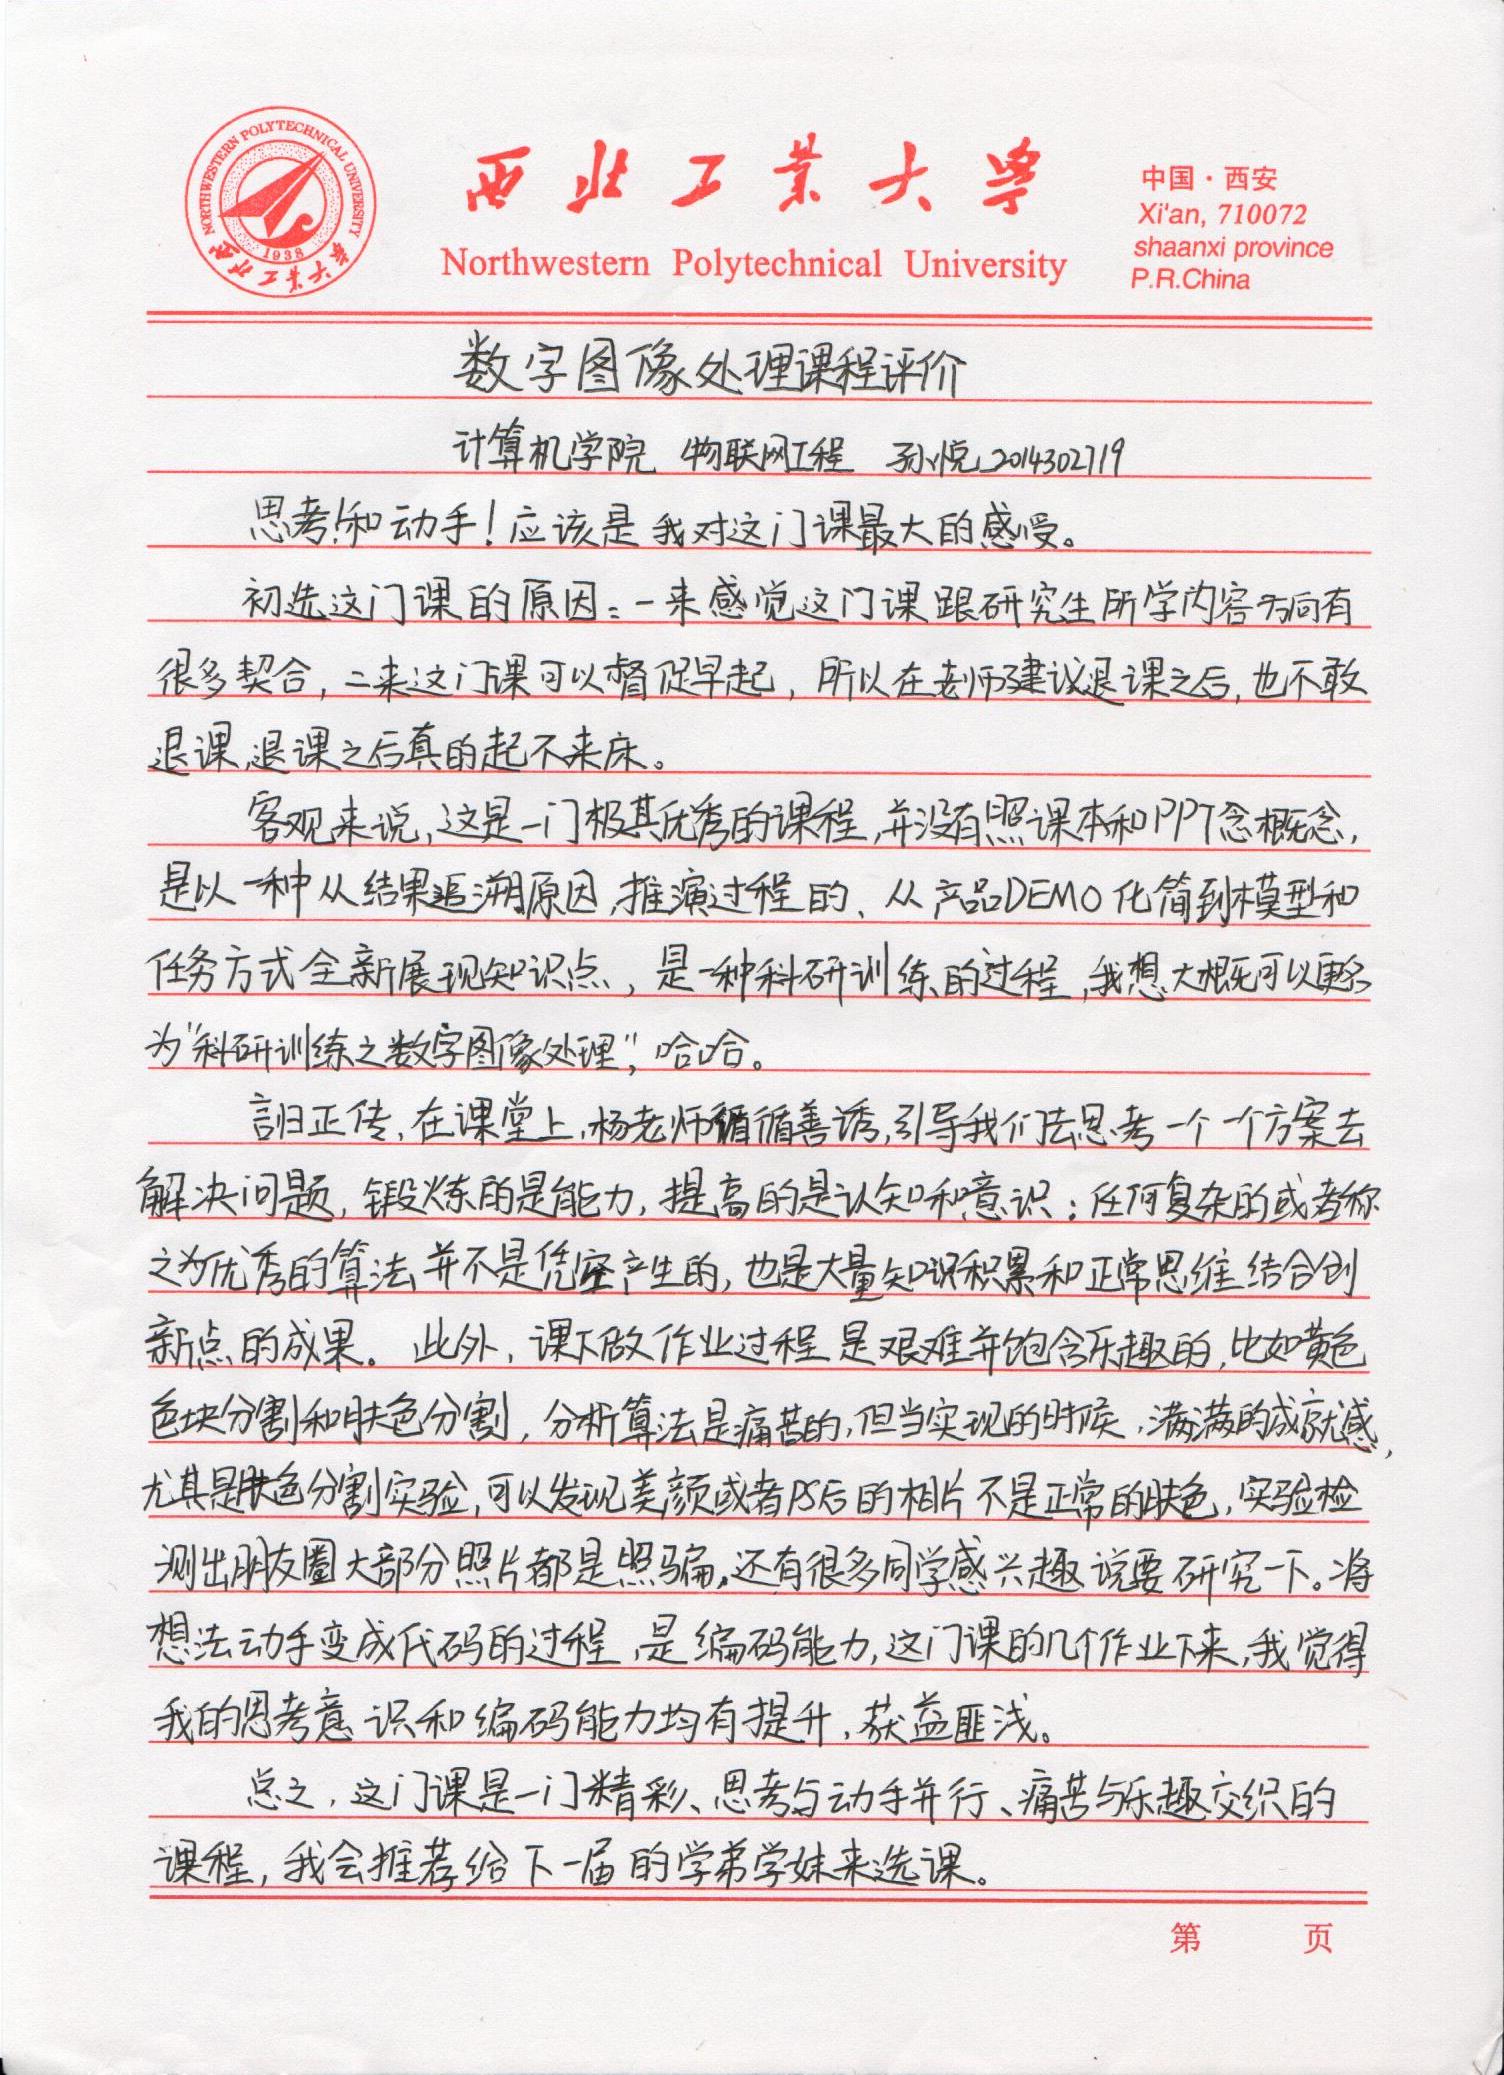 NORTHWESTERN POLYTECHNICAL UNIVERSITY
1938
西北工业大学
西北工业大学
Northwestern Polytechnical University
中国·西安
Xi'an, 710072
shaanxi province
P.R.China
数字图像处理课程评价
计算机学院 物联网工程 孙悦 2014302719
思考!和动手!应该是我对这门课最大的感受。
初选这门课的原因:一来感觉这门课跟研究生所学内容方向有
很多契合,二来这门课可以督促早起,所以在老师建议退课之后,也不敢
退课,退课之后真的起不来床。
客观来说,这是一门极其优秀的课程,并没有照课本和PPT念概念,
是以一种从结果追溯原因,推演过程的、从产品DEMO化简到模型和
任务方式全新展现知识点,是一种科研训练的过程,我想大概可以更名
为"科研训练之数字图像处理",哈哈。
言归正传,在课堂上,杨老师循循善诱,引导我们去思考一个一个方案去
解决问题,锻炼的是能力,提高的是认知和意识:任何复杂的或者称
之为优秀的算法并不是凭空产生的,也是大量知识积累和正常思维结合创
新点的成果。此外,课下做作业过程是艰难并饱含乐趣的,比如黄色
色块分割和肤色分割,分析算法是痛苦的,但当实现的时候,满满的成就感,
尤其是肤色分割实验,可以发现美颜或者PS后的相片不是正常的肤色,实验检
测出朋友圈大部分照片都是照骗,还有很多同学感兴趣说要研究一下。将
想法动手变成代码的过程,是编码能力,这门课的几个作业下来,我觉得
我的思考意识和编码能力均有提升,获益匪浅。
总之,这门课是一门精彩、思考与动手并行、痛苦与乐趣交织的
课程,我会推荐给下一届的学弟学妹来选课。
第 页